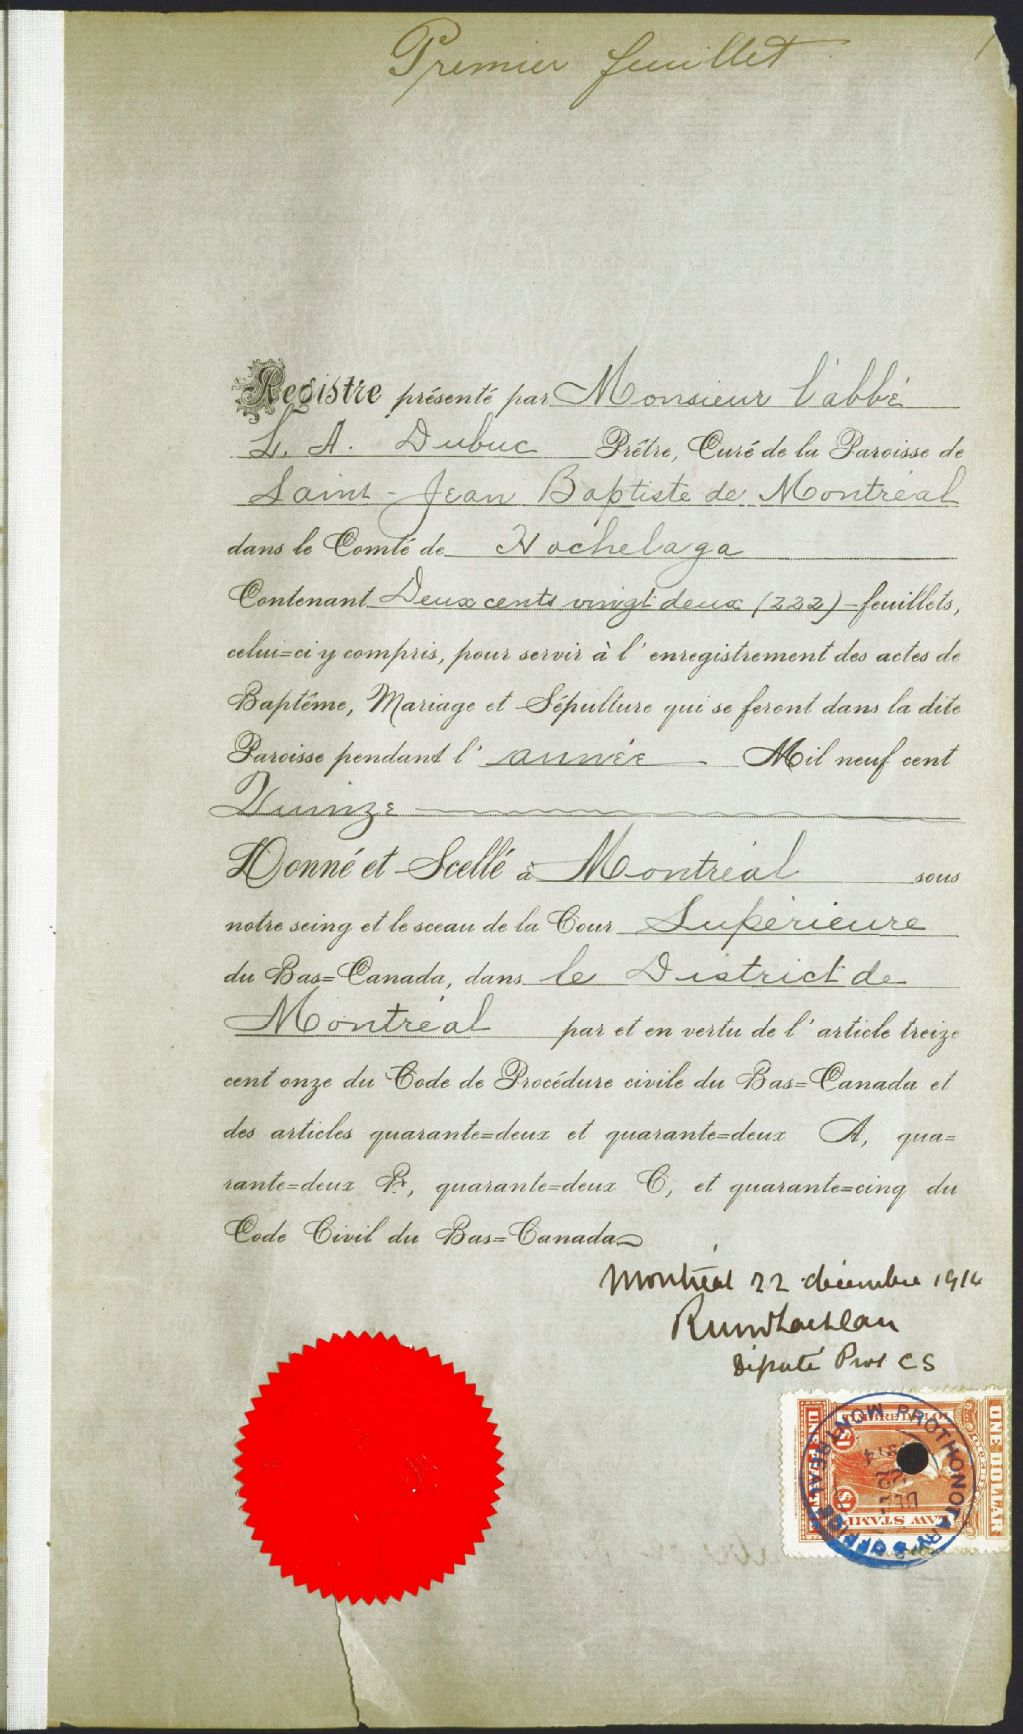 Premier feuillet
Registre présenté par Monsieur l'abbé
L. A. Dubuc Prêtre, Curé de la Paroisse de
Saint-Jean Baptiste de Montréal
dans le Comté de Hochelaga
Contenant Deux cents vingt deux (222) feuillets,
celui=ci y compris, pour servir à l'enregistrement des actes de
Baptême, Mariage et Sépulture qui se feront dans la dite
Paroisse pendant l'année Mil neuf cent
Quinze
Donné et Scellé à Montréal sous
notre seing et le sceau de la Cour Supérieure
du Bas=Canada, dans le District de
Montréal par et en vertu de l'article treize
cent onze du Code de Procédure civile du Bas=Canada et
des articles quarante=deux et quarante=deux A, qua=
rante=deux B, quarante=deux C, et quarante=cinq du
Code Civil du Bas=Canada
Montréal 22 décembre 1914
Député Prot CS
ONE DOLLAR
LAW STAMP
$1 $1
PROTHONOTARY'S OFFICE MONTREAL
DEC 22 1914